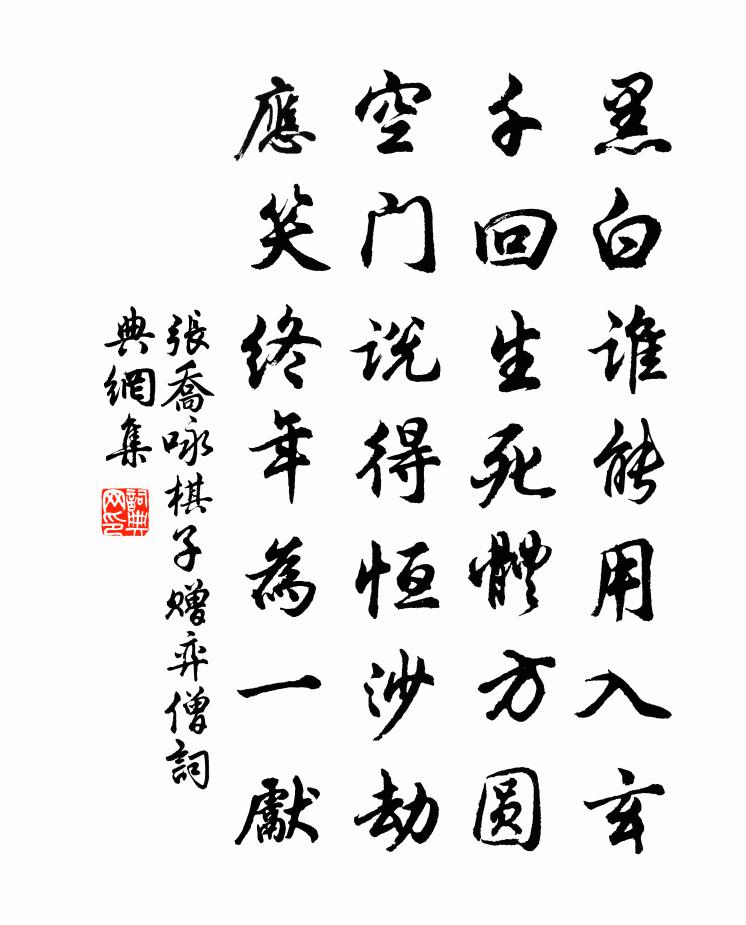 黑白谁能用入玄
千回生死體方圆
空门说得恒沙劫
應笑終年為一獻
張喬咏棋子贈弈僧詞
典網集
詞典
网印